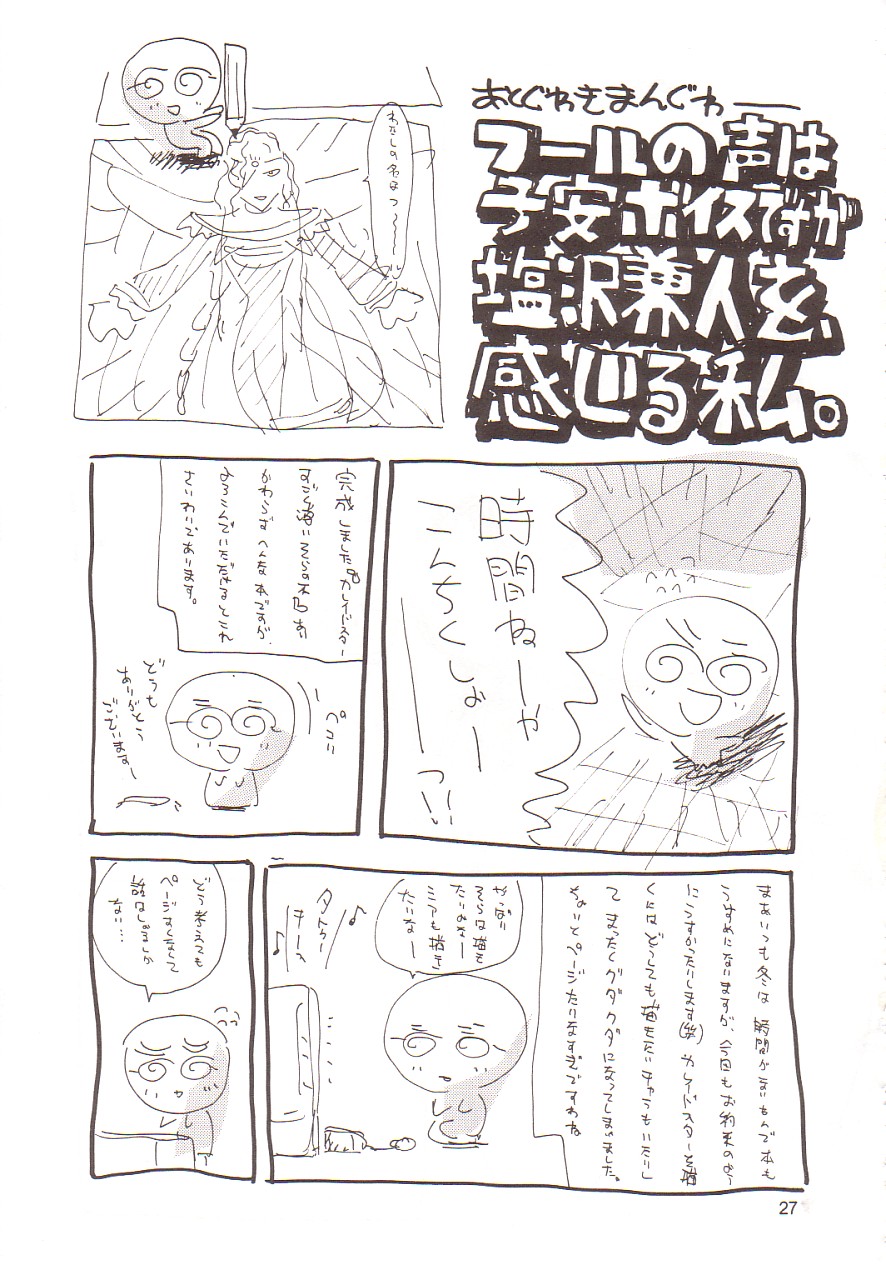 あとぐわきまんぐわ――
フールの声は
子安ボイスですが
塩沢兼人を
感じる私。
わたしの名はっ〜〜〜
時間ねーや
こんちくしょーっ!!
完成しましたカレイドスター
すごく薄いそらの本
かわらずへんな本ですが、
よろこんでいただけるとこれ
さいわいであります。
ペコリ
どうも
ありがとう
ございますー
まあいつも冬は時間がないもんで本も
うすめになりますが、今回もお約束のよう
にうすかったりします(笑)カレイドスターを描
くにはどうしても描きたいキャラもいたりし
てまったくグダグダになってしまいました。
ちょいとページたりなすぎですわね
やっぱり
そらは描き
たいよなー
ミアも描き
たいなー
どう考えても
ページ少なくて
話はしょるしか
ない…
27